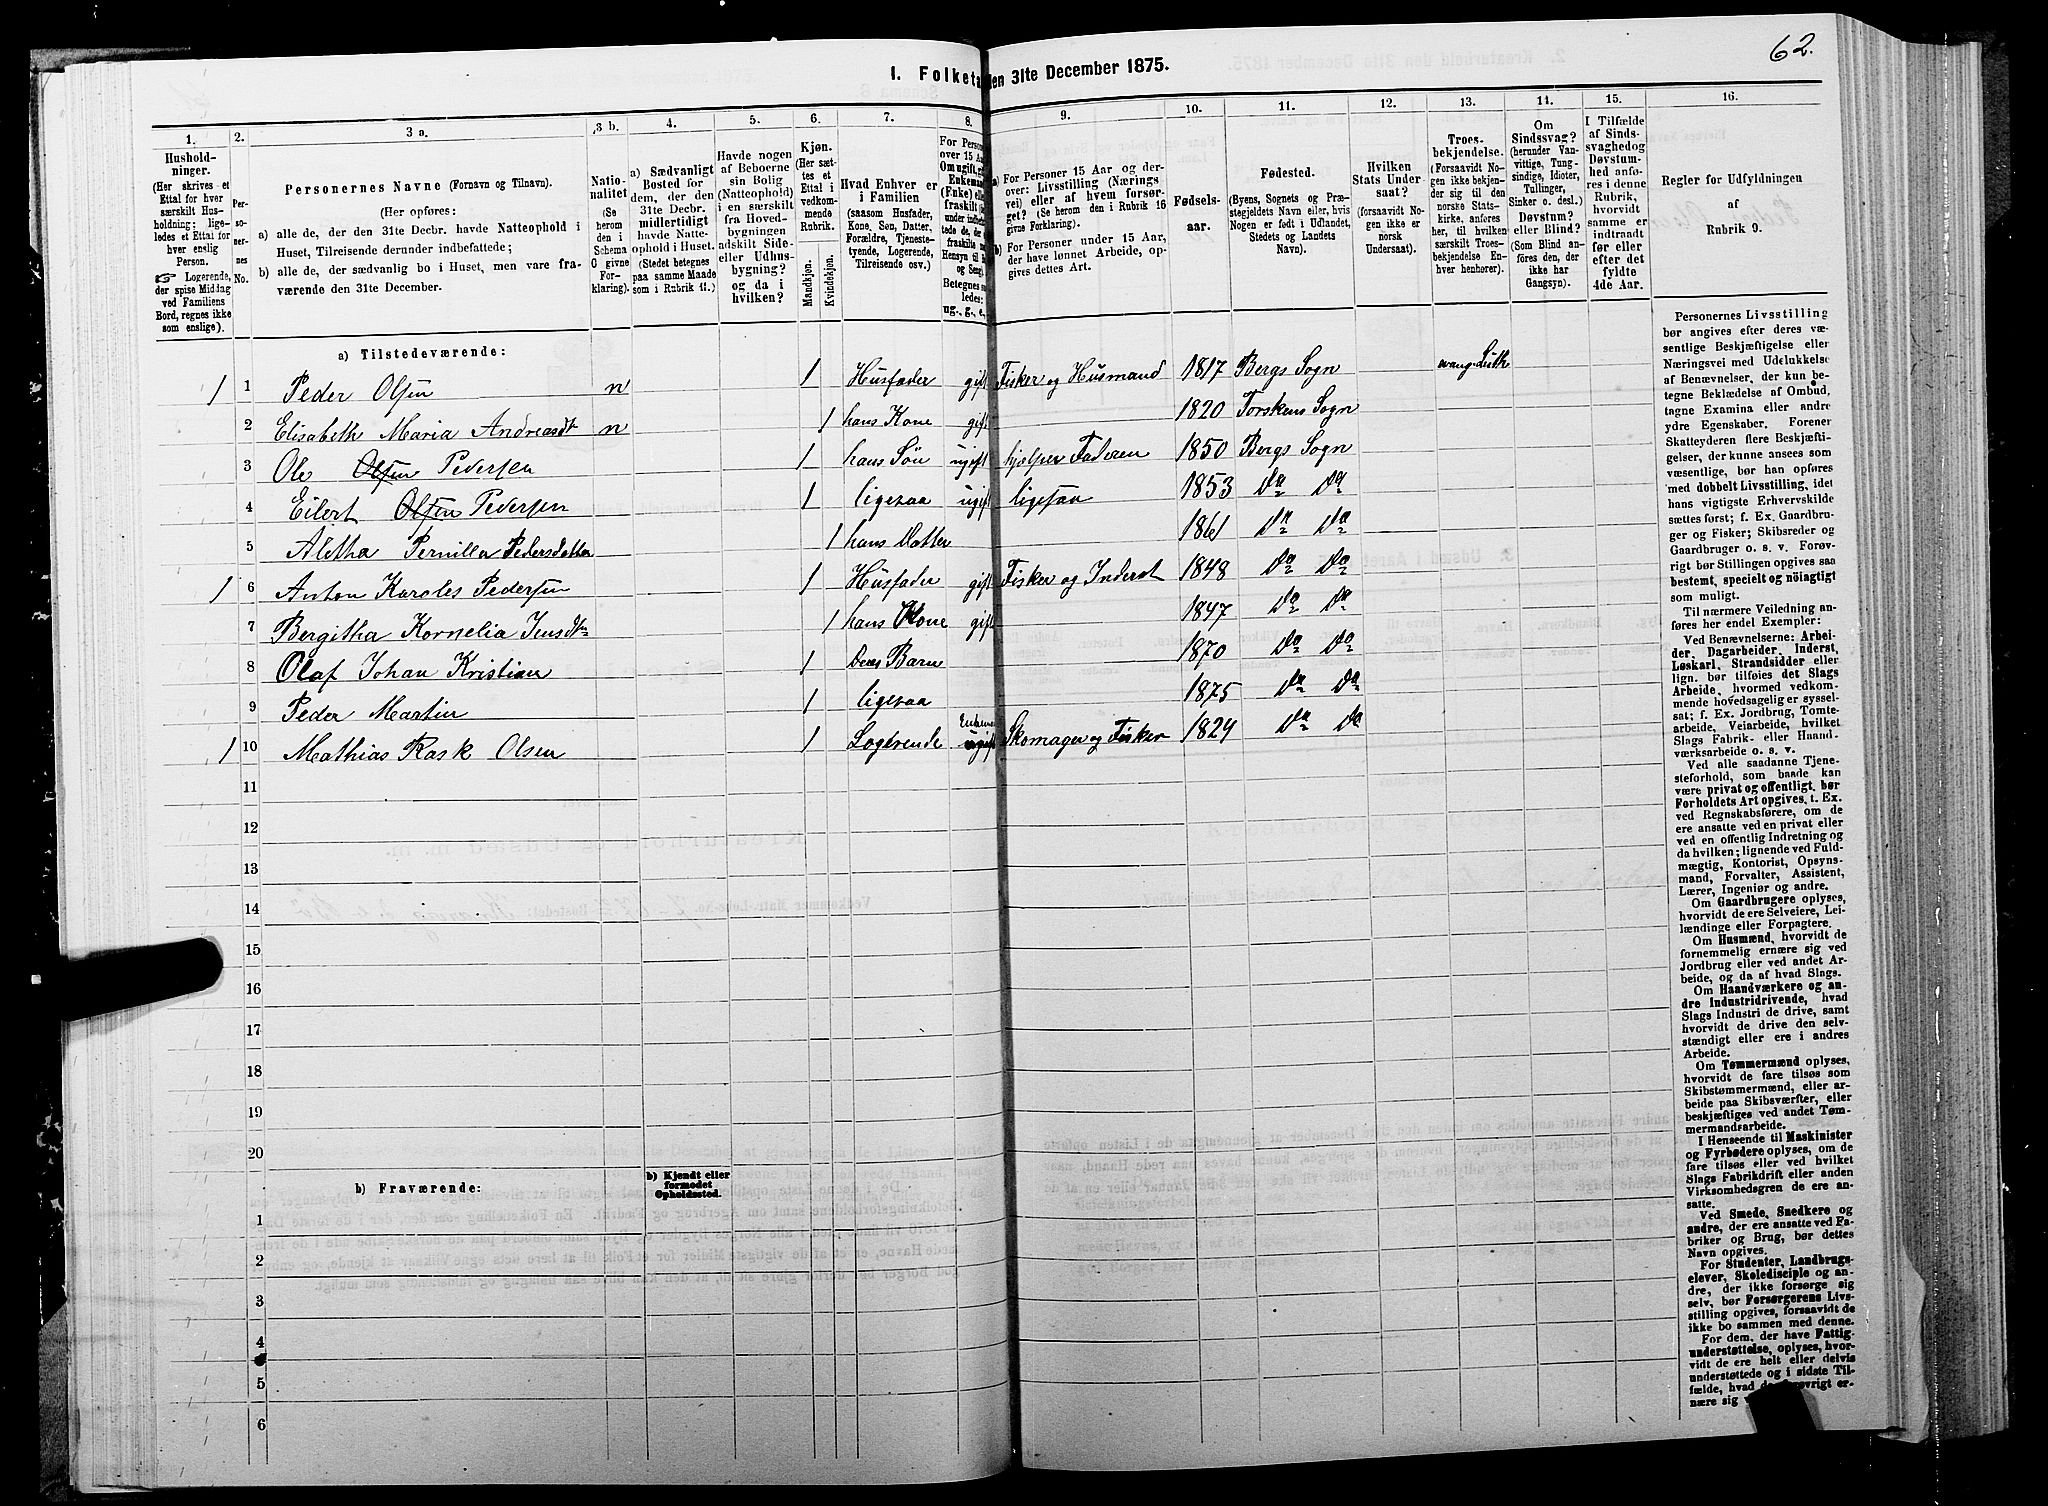 62.
I. Folketa
den 31te December 1875.
1. 2. 3 a. 3 b. 4. 5. 6. 7. 8. 9. 10. 11. 12. 13. 14. 15. 16.
Hushold-
ninger.
(Her skrives et
Ettal for hver
særskilt Hus-
holdning; lige-
ledes et Ettal for
hver enslig
Person.
☞ Logerende,
der spise Middag
ved Familiens
Bord, regnes ikke
som enslige).
Per-
so-
ner-
nes
No.
Personernes Navne (Fornavn og Tilnavn).
(Her opføres:
a) alle de, der den 31te Decbr. havde Natteophold i
Huset, Tilreisende derunder indbefattede;
b) alle de, der sædvanlig bo i Huset, men vare fra-
værende den 31te December.
Natio-
nalitet
(Se
herom
den i
Schema
C givne
For-
klaring).
a) Sædvanligt
Bosted for
dem, der den
31te Decbr.
midlertidigt
havde Natte-
ophold i Huset.
(Stedet betegnes
paa samme Maade
som i Rubrik 11.)
Havde nogen
af Beboerne
sin Bolig
(Natteophold)
i en særskilt
fra Hoved-
bygningen
adskilt Side-
eller Udhus-
bygning?
og da i
hvilken?
Kjøn.
(Her sæt-
tes et
Ettal i
vedkom-
mende
Rubrik.
Mandkjøn.
Kvindekjøn.
Hvad Enhver er
i Familien
(saasom Husfader,
Kone, Søn, Datter,
Forældre, Tjeneste-
tyende, Logerende,
Tilreisende osv.)
For Person
over 15 Aa
Om ugift, g
Enkema
(Enke) elle
fraskilt (
under
tede de, de
fraskilte
Hensyn til
og Seng
Betegnes s
ledes:
ug., g., e,
a) For Personer 15 Aar og der-
over: Livsstilling (Nærings-
vei) eller af hvem forsør-
get? (Se herom den i Rubrik 16
givne Forklaring).
b) For Personer under 15 Aar,
der have lønnet Arbeide, op-
gives dettes Art.
Fødsels-
aar.
Fødested.
(Byens, Sognets og Præ-
stegjeldets Navn eller, hvis
Nogen er født i Udlandet,
Stedets og Landets
Navn).
Hvilken
Stats Under-
saat?
(forsaavidt No-
gen ikke er
norsk
Undersaat).
Troes-
bekjendelse.
(Forsaavidt No-
gen ikke bekjen-
der sig til den
norske Stats-
kirke, anføres
her, til hvilken
særskilt Troes-
bekjendelse En-
hver henhører).
Om
Sindssvag?
(herunder Van-
vittige, Tung-
sindige, Idioter,
Tullinger,
Sinker o. desl.)
Døvstum?
eller Blind?
(Som Blind an-
føres den, der
ikke har
Gangsyn).
I Tilfælde
af Sinds-
svaghedog
Døvstum-
hed anfø-
res i denne
Rubrik,
hvorvidt
samme er
indtraadt
før eller
efter det
fyldte
4de Aar.
Regler for Udfyldningen
af
Rubrik 9.
a) Tilstedeværende:
1 1 Peder Olsen n 1 Husfader gift Fisker og Husmand 1817 Bergs Sogn evang. Luth
2 Elisabeth Maria Andreasdt n 1 hans Kone gift 1820 Torskens Sogn
3 Ole Olsen Pedersen 1 hans Søn ugift hjelper Faderen 1850 Bergs Sogn
4 Eilert Olsen Pedersen 1 ligesaa ugift ligesaa 1853 Do Do
5 Aletha Pernille Pedersdatter 1 hans Datter 1861 Do Do
1 6 Anton Karoles Pedersen 1 Husfader gift Fisker og Inderst 1848 Do Do
7 Bergitha Kornelia Jensdtr 1 hans Kone gift 1847 Do Do
8 Olaf Johan Kristian 1 Deres Barn 1870 Do Do
9 Peder Martin 1 ligesaa 1875 Do Do
1 10 Mathias Rask Olsen 1 Logerende ugift Skomager og Fisker 1829 Do Do
11
12
13
14
15
16
17
18
19
20
b) Fraværende:
b) Kjendt eller
formodet
Opholdssted.
1
2
3
4
5
6
Personernes Livsstilling
bør angives efter deres væ-
sentlige Beskjæftigelse eller
Næringsvei med Udelukkelse
af Benævnelser, der kun be-
tegne Beklædelse af Ombud,
tagne Examina eller andre
ydre Egenskaber. Forener
Skatteyderen flere Beskjæfti-
gelser, der kunne ansees som
væsentlige, bør han opføres
med dobbelt Livsstilling, idet
hans vigtigste Erhvervskilde
sættes først; f. Ex. Gaardbru-
ger og Fisker; Skibsreder og
Gaardbruger o. s. v. Forøv-
rigt bør Stillingen opgives saa
bestemt, specielt og nøiagtigt
som muligt.
Til nærmere Veiledning an-
føres her endel Exempler:
Ved Benævnelserne: Arbei-
der, Dagarbeider, Inderst,
Løskarl, Strandsidder eller
lign. bør tilføies det Slags
Arbeide, hvormed vedkom-
mende hovedsagelig er syssel-
sat; f. Ex. Jordbrug, Tomte-
arbeide, Veiarbeide, hvilket
Slags Fabrik- eller Haand-
værksarbeide o. s. v.
Ved alle saadanne Tjene-
steforhold, som baade kan
være privat og offentligt, bør
Forholdets Art opgives, t. Ex.
ved Regnskabsførere, om de
ere ansatte ved en privat eller
ved en offentlig Indretning og
da hvilken; lignende ved Fuld-
mægtig, Kontorist, Opsyns-
mand, Forvalter, Assistent,
Lærer, Ingeniør og andre.
Om Gaardbrugere oplyses,
hvorvidt de ere Selveiere, Lei-
lændinge eller Forpagtere.
Om Husmænd, hvorvidt de
fornemmelig ernære sig ved
Jordbrug eller ved andet Ar-
beide, og da af hvad Slags.
Om Haandværkere og an-
dre Industridrivende, hvad
Slags Industri de drive, samt
hvorvidt de drive den selv-
stændigt eller ere i andres
Arbeide.
Om Tømmermænd oplyses,
hvorvidt de fare tilsøs som
Skibstømmermænd, eller ar-
beide paa Skibsværfter, eller
beskjæftiges ved andet Tøm-
mermandsarbeide.
I Henseende til Maskinister
og Fyrbødere oplyses, om de
fare tilsøs eller ved hvilket
Slags Fabrikdrift eller anden
Virksomhedsgren de ere an-
satte.
Ved Smede, Snedkere og
andre, der ere ansatte ved Fa-
briker og Brug, bør dettes
Navn opgives.
For Studenter, Landbrugs-
elever, Skoledisciple og an-
dre, der ikke forsørge sig
selv, bør Forsørgerens Livs-
stilling opgives, forsaavidt de
ikke bo sammen med denne.
For dem, der have Fattig-
understøttelse, oplyses, hvor-
vidt de ere helt eller delvis
understøttede og i sidste Til-
fælde, hvad de forøvrigt er-
nære sig